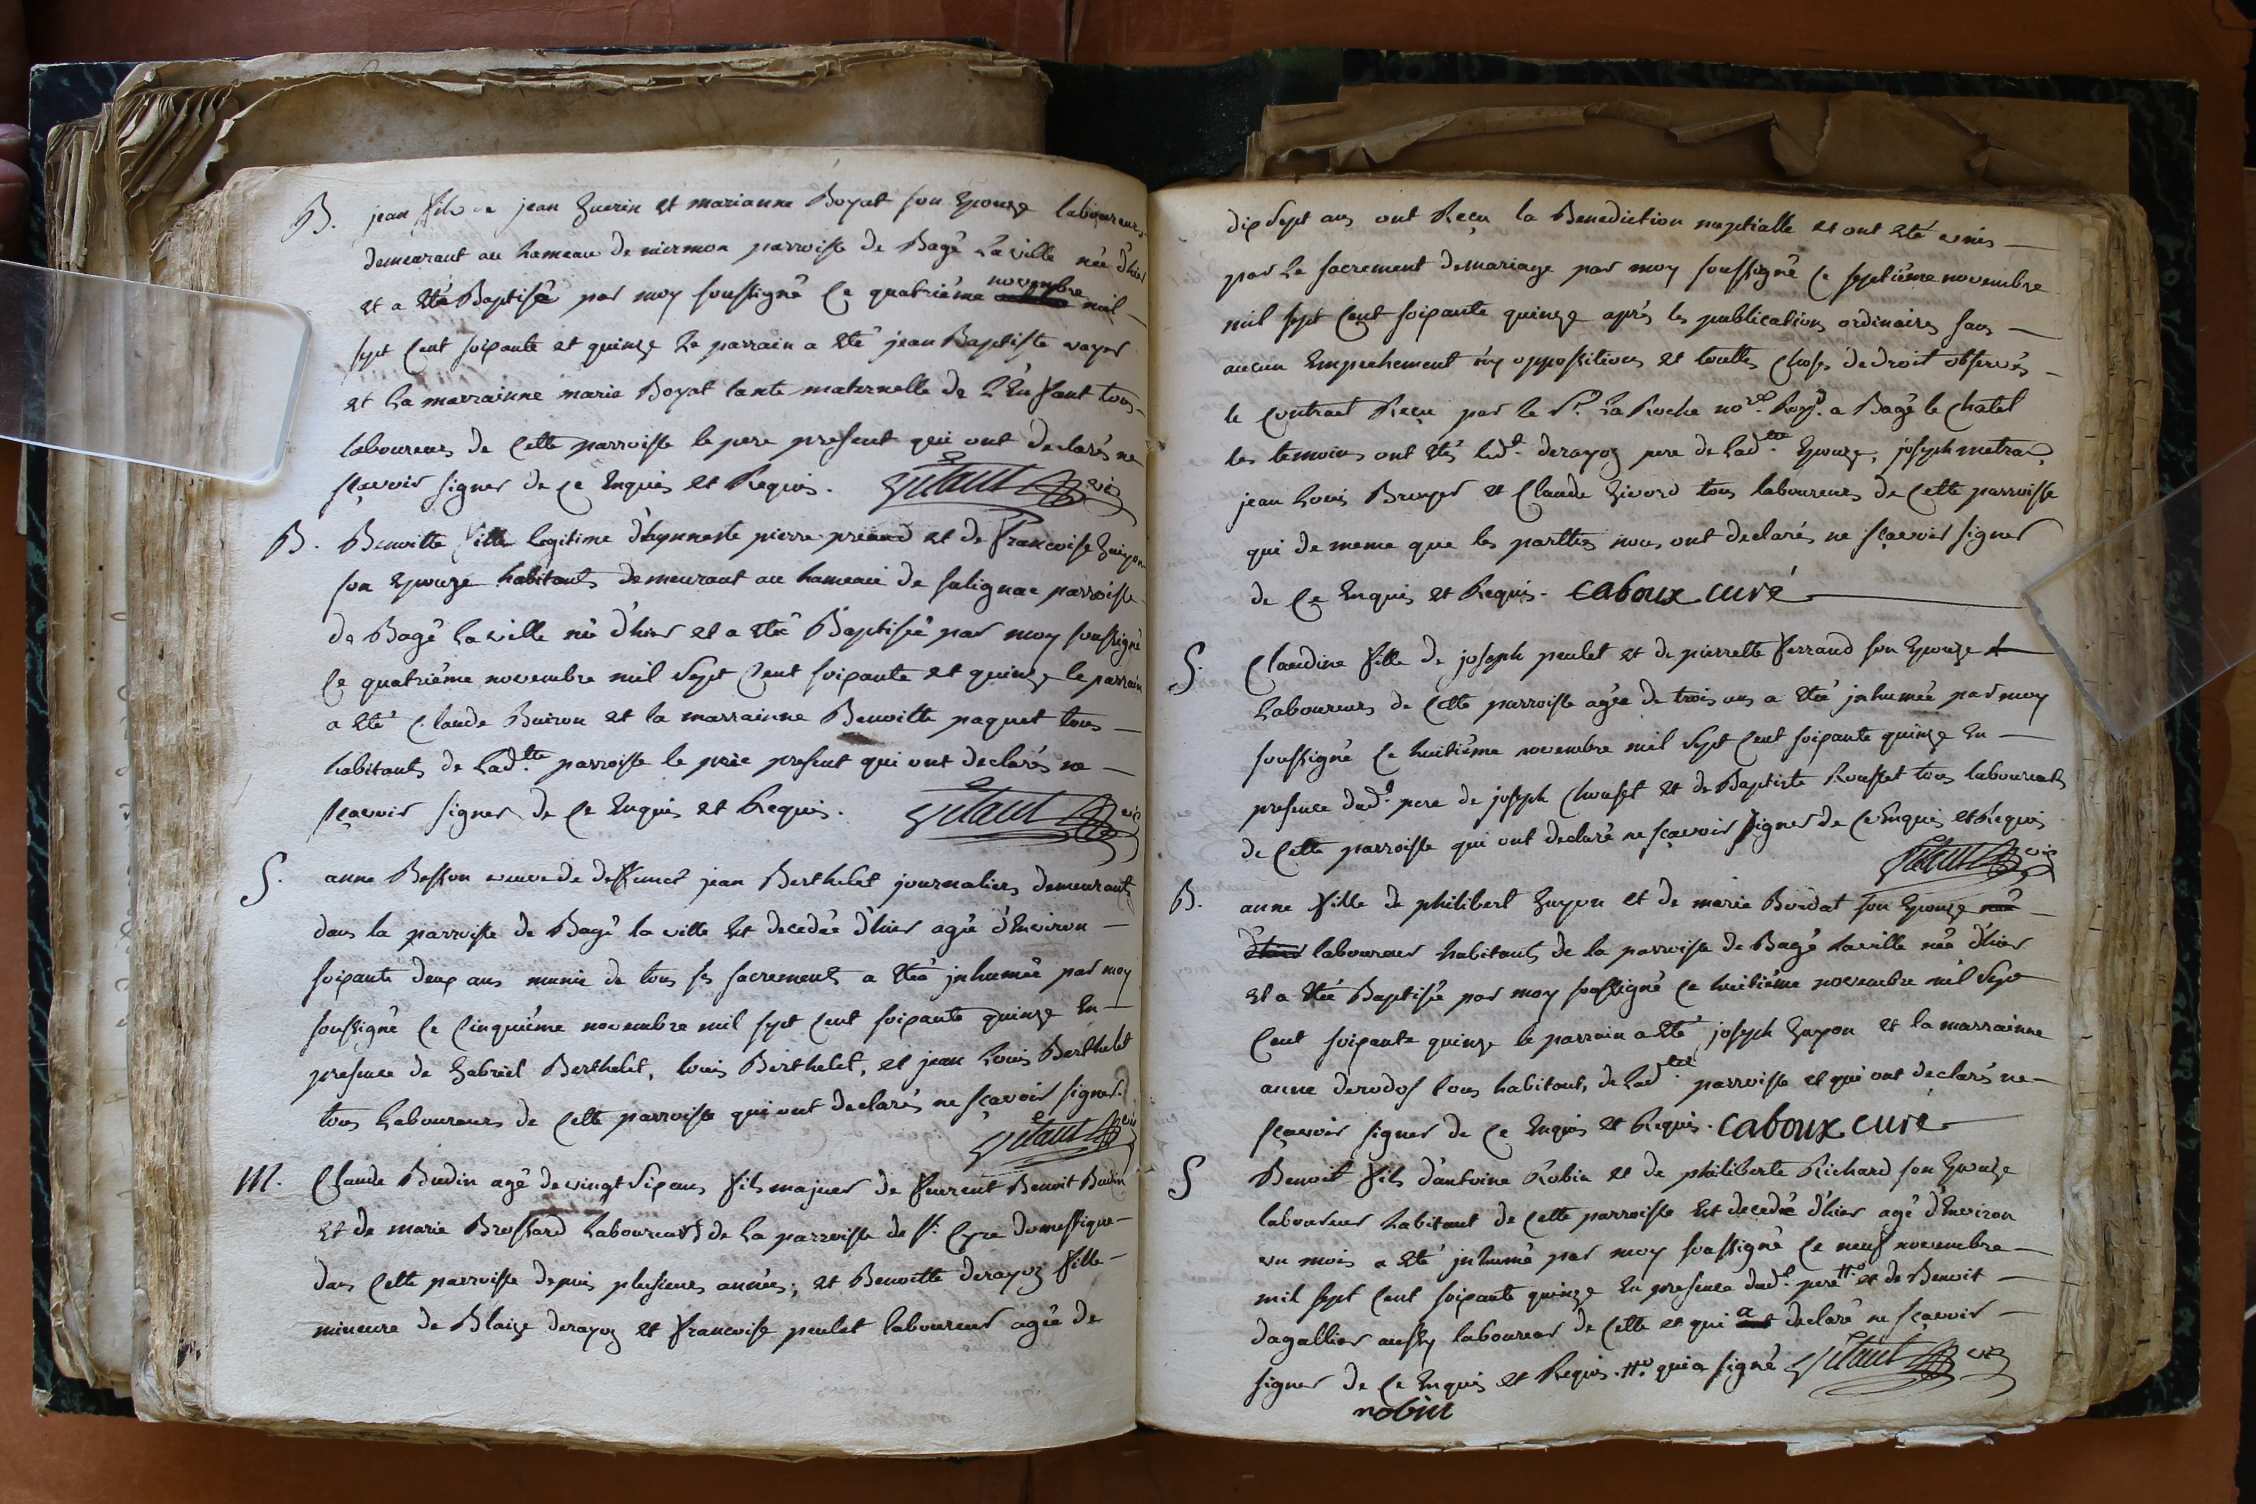 B. jean fils de jean Guerin et marianne Boyat son Epouze laboureurs
demeurant au hameau de mermon parroisse de Bagé La ville née d'hier
et a été Baptisé par moy soussigné Ce quatriéme novembre mil
sept Cent soixante et quinze Le parrain a été jean Baptiste voyer
et La marrainne marie Boyat tante maternelle de L'Enfant tous
laboureurs de Cette parroisse le pere present qui ont declarés ne
sçavoir signer de Ce Enquis et Requis.
B. Benoitte fille legitime d'hynneste pierre et de Francoise Guyon
son Epouze habitants demeurant au hameau de salignac parroisse
de Bagé La ville née d'hier et a été Baptisée par moy soussigné
Ce quatriéme novembre mil sept Cent soixante et quinze le parrain
a été Claude Buiron et la marrainne Benoitte paquet tous
habitants de Ladtte parroisse le père present qui ont declarés ne
sçavoir signer de Ce Enquis et Requis.
S. anne Besson veuve de deffunct jean Berthelet journaliers demeurants
dans la parroisse de Bagé la ville Est decedée d'hier agée d'Environ
soixante deux ans munie de tous ses sacrements a été jnhumée par moy
soussigné Ce Cinquiéme novembre mil sept Cent soixante quinze En
presence de Gabriel Berthelet, louis Berthelet, et jean Louis Berthelet
tous Laboureurs de Cette parroisse qui ont declarés ne sçavoir signer.
M. Claude Budin agé de vingt six ans fils majeur de Benoit Budin
et de marie Brossard Laboureurs de La parroisse de st. Cyre domestique
dans Cette parroisse depuis plusieurs années; et Benoitte derayoz fille
mineure de Blaize derayoz et francoise peulet laboureur agée de
dix sept ans ont Reçu la Benediction nuptialle et ont été unis
par Le sacrement de mariage par moy soussigné Ce septiéme novembre
mil sept Cent soixante quinze aprés les publications ordinaires sans
aucun Empechement ny oppositions et touttes Choses de droit observés
le Contract Reçu par Le Sr. La Roche nore. Royl. a Bagé le Chatel
les temoins ont étés Ledt. derayoz pere de Ladtte. Epouze, joseph metra
jean Louis Broyer et Claude Givord tous laboureurs de Cette parroisse
qui de meme que les partties nous ont declarés ne sçavoir signer
de Ce Enquis et Requis. caboux curé
S. Claudine fille de joseph peulet et de pierrette ferrand son Epouze
Laboureurs de Cette parroisse agée de trois ans a été jnhumée par moy
soussigné Ce huitiéme novembre mil sept Cent soixante quinze En
presence dudt. pere de joseph Chouset et de Baptiste Rousset tous laboureurs
de Cette parroisse qui ont declaré ne sçavoir signer de Ce Enquis et Requis
B. anne fille de philibert Guyon et de marie Bordat son Epouze née
d'hier laboureur habitants de la parroisse de Bagé La ville née d'hier
et a été Baptisée par moy soussigné Ce huitiéme novembre mil sept
Cent soixante quinze le parrain a été joseph Guyon et la marrainne
anne derodos tous habitants de Ladtte. parroisse et qui ont declarés ne
sçavoir signer de Ce Enquis et Requis. caboux curé
S Benoit fils d'antoine Robin et de philiberte Richard son Epouze
laboureur habitant de Cette parroisse Est decedée d'hier agé d'Environ
un mois a été jnhumé par moy soussigné Ce neuf novembre
mil sept Cent soixante quinze En presence dudt. pere et de Benoit
dagallier aussy laboureur de Cette et qui a declaré ne sçavoir
signer de Ce Enquis et Requis. qui a signé
robin